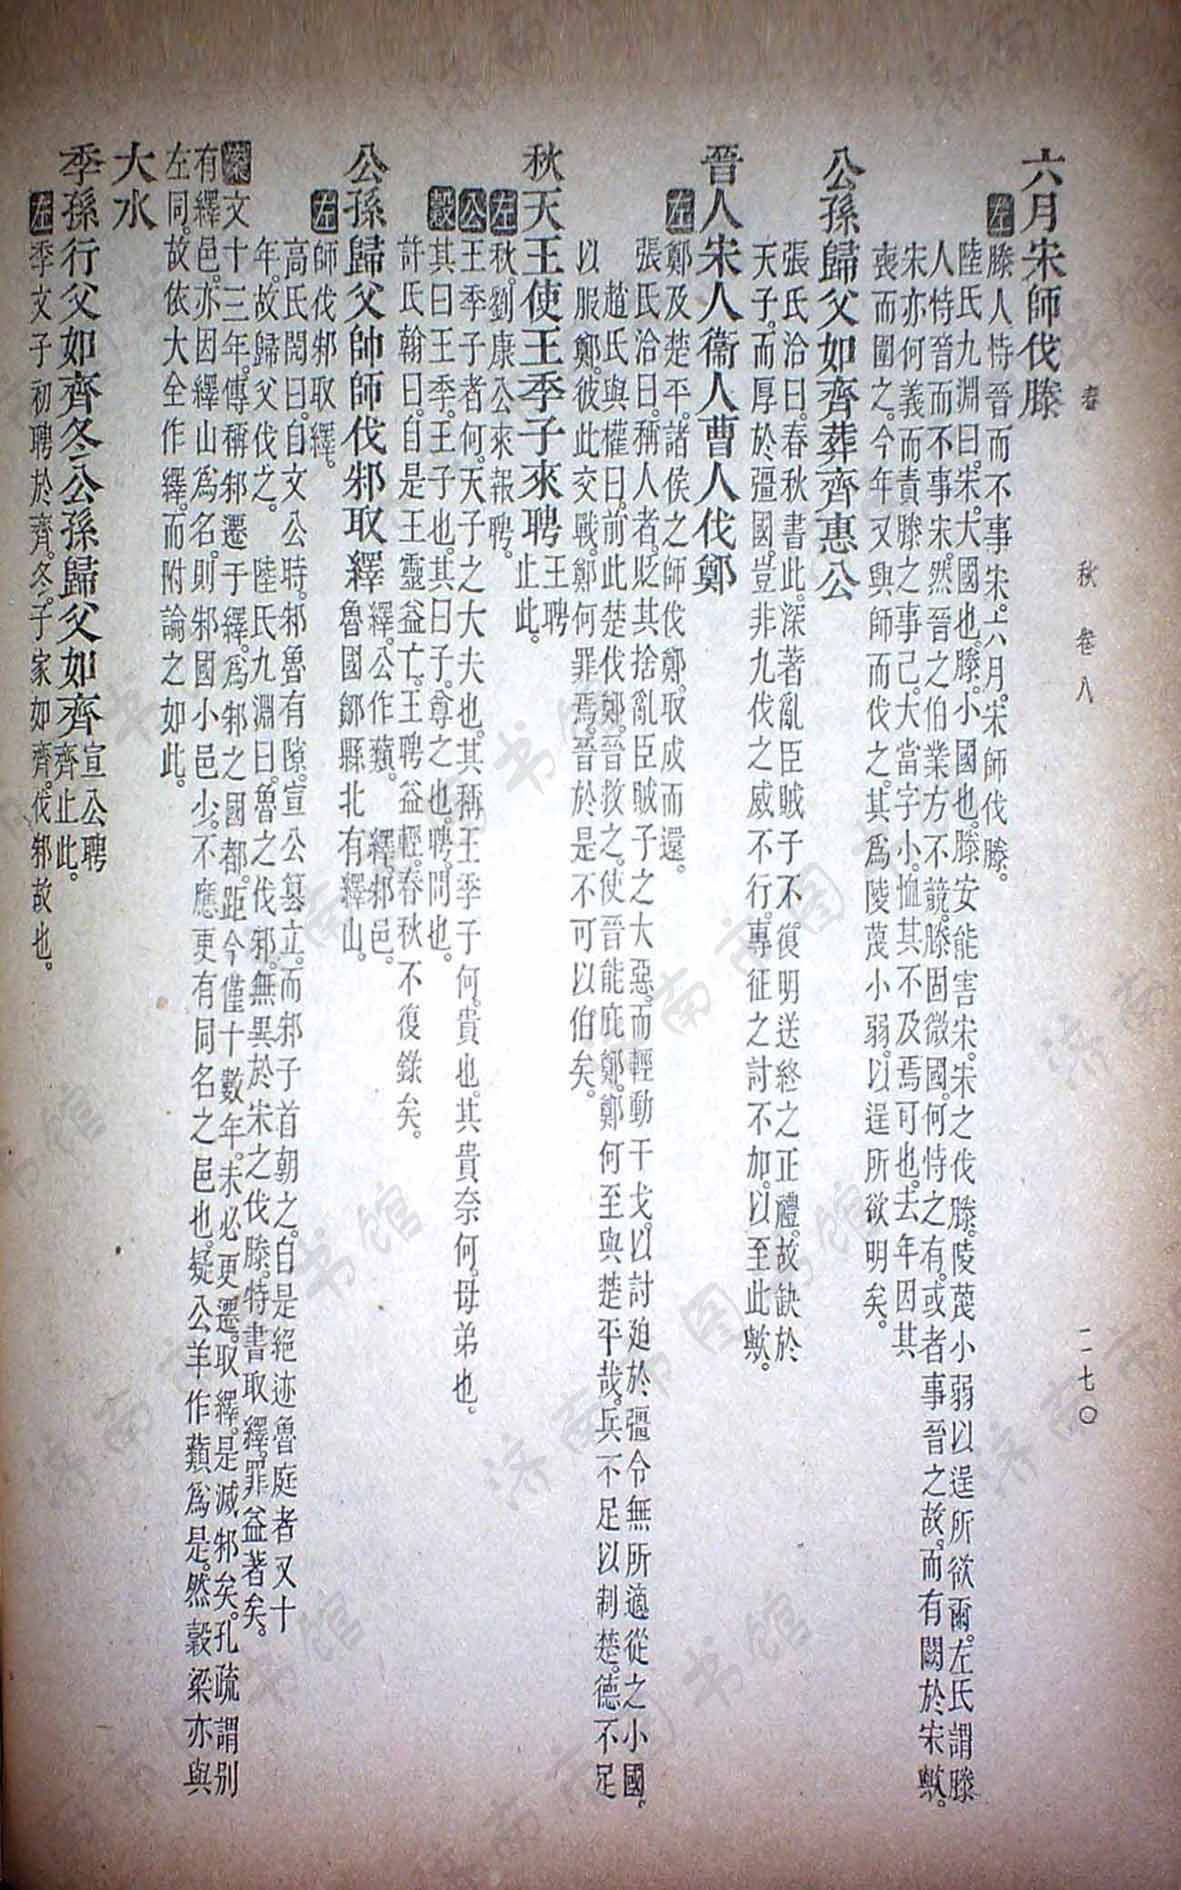 春　秋　卷八　二七〇
六月宋師伐滕
左 滕人恃晉而不事宋。六月。宋師伐滕。
陸氏九淵曰。宋。大國也。滕。小國也。滕安能害宋。宋之伐滕。陵蔑小弱以逞所欲爾。左氏謂滕
人恃晉而不事宋。然晉之伯業方不競。滕固微國。何恃之有。或者事晉之故。而有闕於宋歟。
宋亦何義而責滕之事己。大當字小。恤其不及焉可也。去年因其
喪而圍之。今年又興師而伐之。其爲陵蔑小弱。以逞所欲明矣。
公孫歸父如齊葬齊惠公
張氏洽曰。春秋書此。深著亂臣賊子不復明送終之正禮。故缺於
天子。而厚於彊國。豈非九伐之威不行。專征之討不加。以至此歟。
晉人宋人衞人曹人伐鄭
左 鄭及楚平。諸侯之師伐鄭。取成而還。
張氏洽曰。稱人者。貶其捨亂臣賊子之大惡。而輕動干戈。以討廹於彊令無所適從之小國。
趙氏與權曰。前此楚伐鄭。晉救之。使晉能庇鄭。鄭何至與楚平哉。兵不足以制楚。德不足
以服鄭。彼此交戰。鄭何罪焉。晉於是不可以伯矣。
秋天王使王季子來聘 王聘止此。
左 秋。劉康公來報聘。
公 王季子者何。天子之大夫也。其稱王季子何。貴也。其貴奈何。母弟也。
穀 其曰王季。王子也。其曰子。尊之也。聘。問也。
許氏翰曰。自是王靈益亡。王聘益輕。春秋不復錄矣。
公孫歸父帥師伐邾取繹 繹。公作蘱。　繹。邾邑。魯國鄒縣北有繹山。
左 師伐邾取繹。
高氏閌曰。自文公時。邾魯有隙。宣公篡立。而邾子首朝之。自是絕迹魯庭者又十
年。故歸父伐之。　陸氏九淵曰。魯之伐邾。無異於宋之伐滕。特書取繹。罪益著矣。
案 文十三年。傳稱邾遷于繹。爲邾之國都。距今僅十數年。未必更遷。取繹。是滅邾矣。孔疏謂別
有繹邑。亦因繹山爲名。則邾國小邑少。不應更有同名之邑也。疑公羊作蘱爲是。然穀梁亦與
左同。故依大全作繹。而附論之如此。
大水
季孫行父如齊冬公孫歸父如齊 宣公聘齊止此。
左 季文子初聘於齊。冬。子家如齊。伐邾故也。